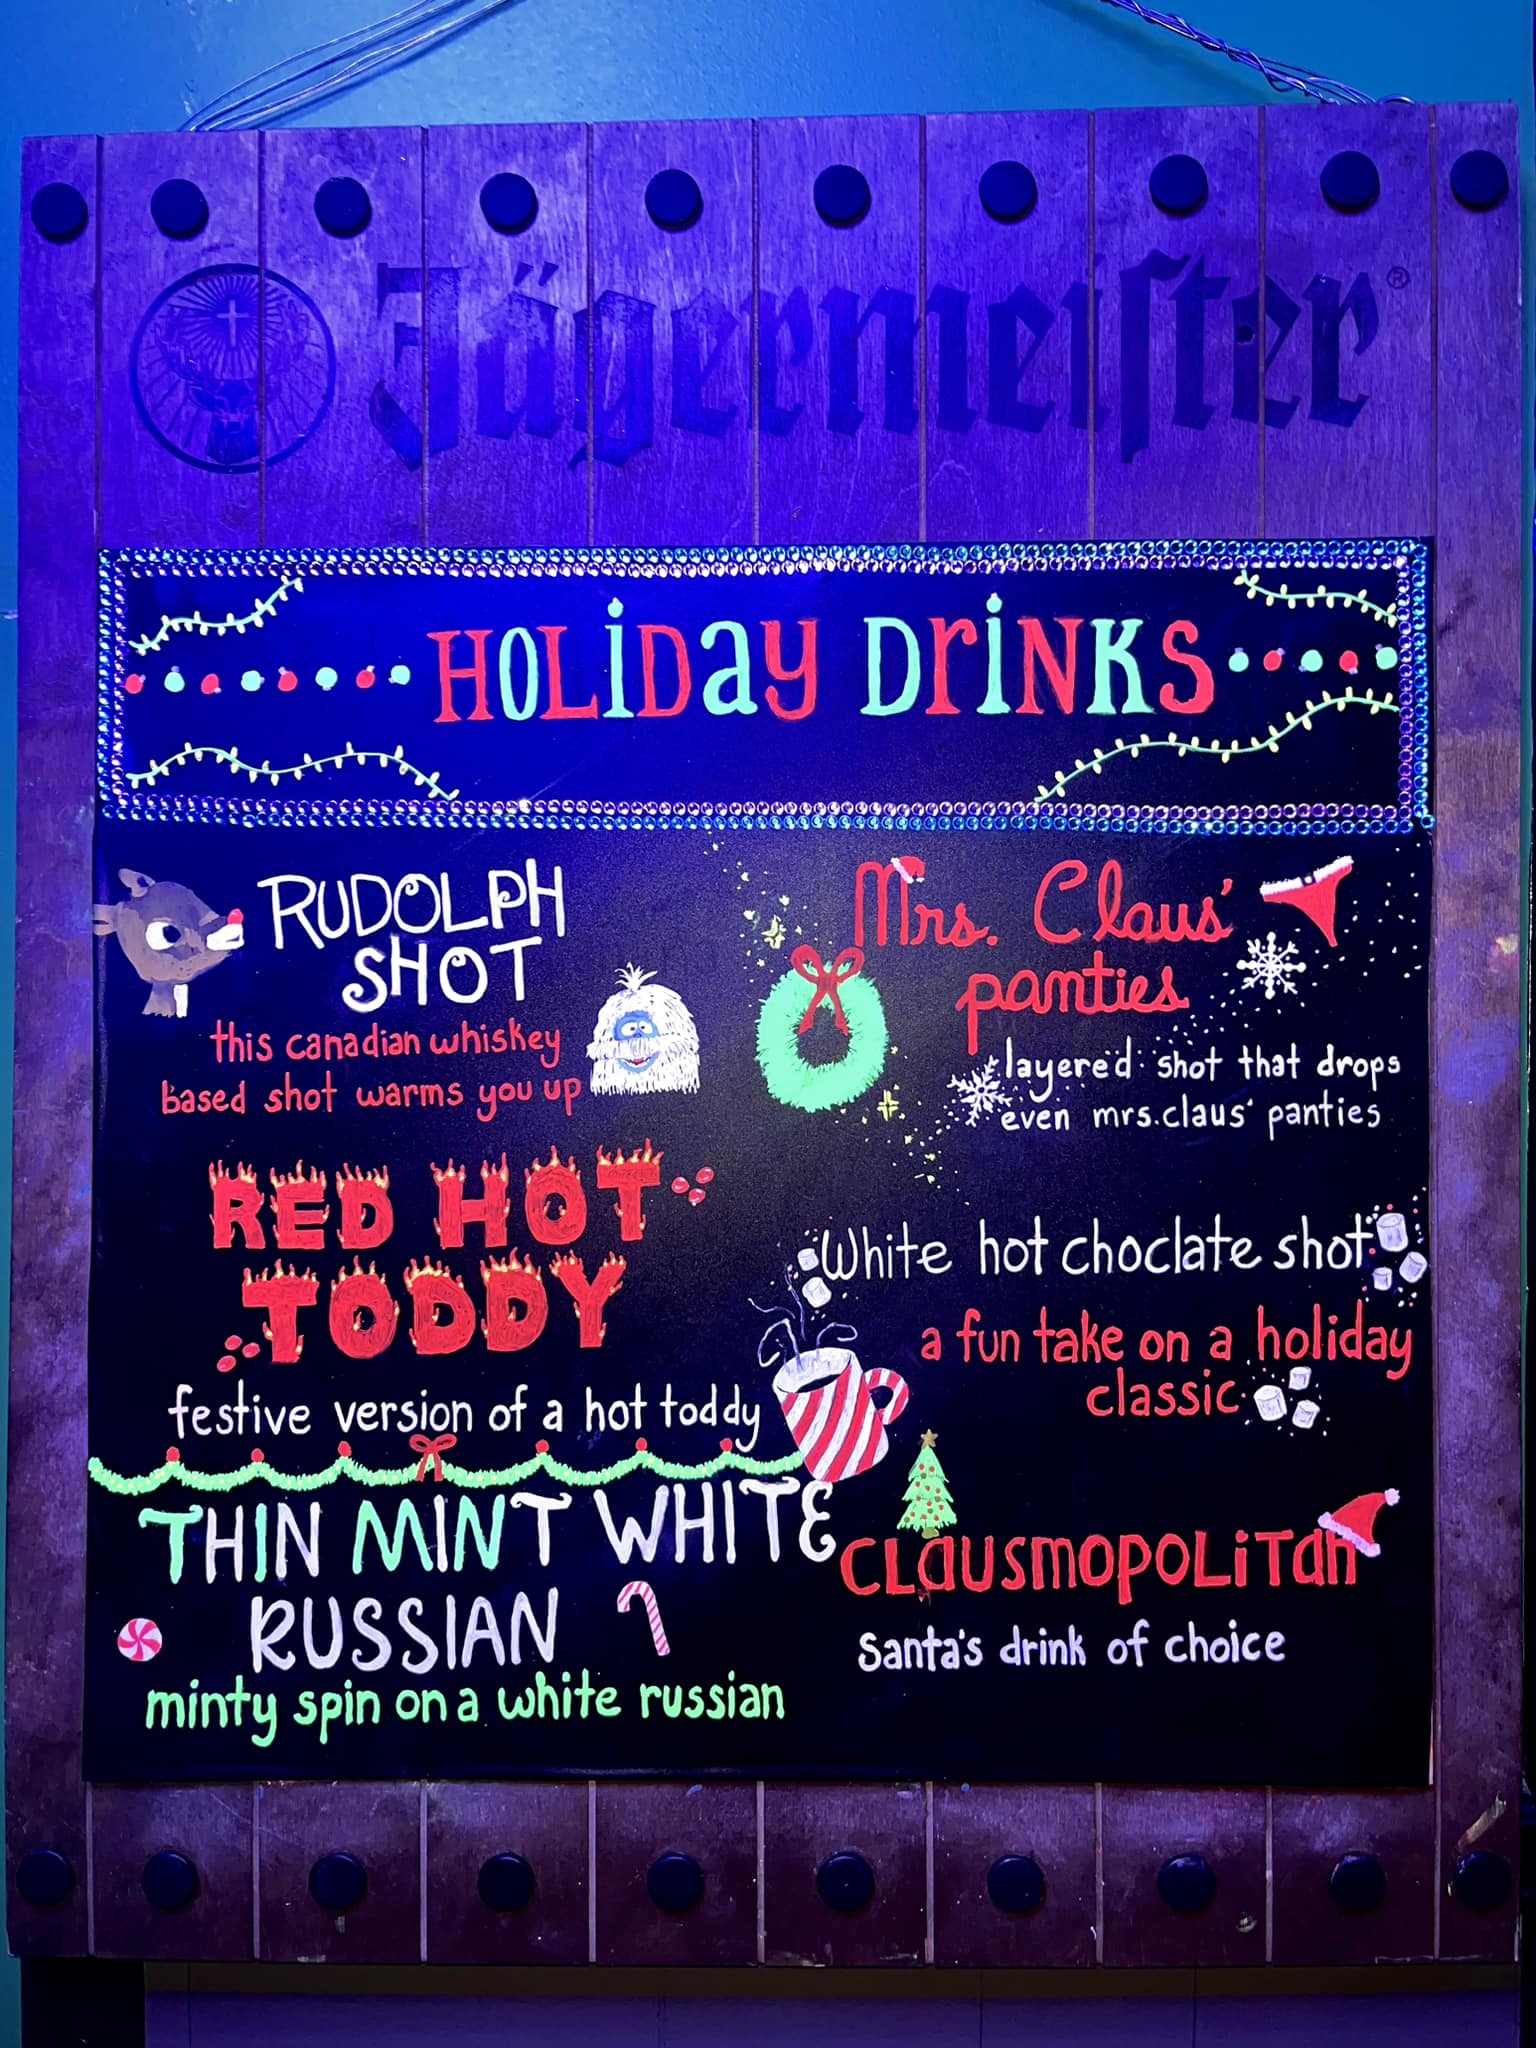 Jägermeister®
HOLiDay DriNKS
RUDOLPH
SHOT
this canadian whiskey
based shot warms you up
Mrs. Claus'
panties
layered shot that drops
even mrs.claus' panties
RED HOT
TODDY
festive version of a hot toddy
White hot choclate shot
a fun take on a holiday
classic
THIN MINT WHITE
RUSSIAN
minty spin on a white russian
CLausmopoLiTan
Santa's drink of choice